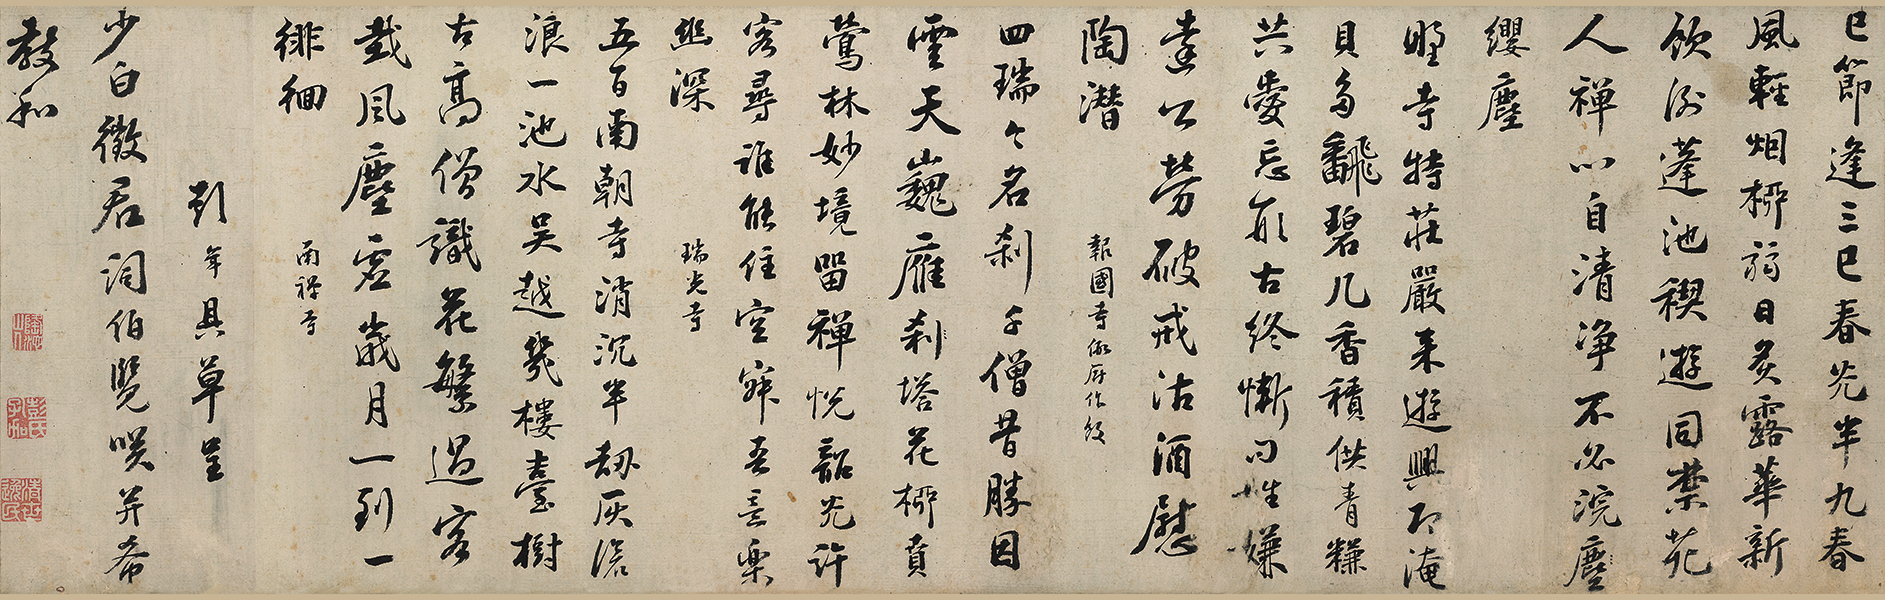 巳節逢三巳春光半九春
風輕烟柳弱日炙露華新
飲湎蓬池禊遊同禁苑
人禪心自清淨不必浣塵
纓塵
野寺特莊嚴來遊興不淹
貝多翻碧几香積供青糠
共愛忘形古終慚問性嫌
遠公勞破戒沽酒慰
陶潛
報國寺飯後作
四瑞々名刹千僧昔勝因
雲天巍雁刹塔花柳
鶯林妙境留禪悅韶光許
客尋誰能住空寂吾言樂
幽深
瑞光寺
五百南朝寺消沉半劫灰滄
浪一池水吳越幾樓臺樹
古高僧識花繁過客
哉風塵處歲月一到一
徘徊
南禪寺
彭年具草呈
少白徵君詞伯覽咲并希
教和